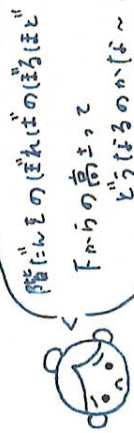 階だんをのぼればのぼるほど
下からの高さって
どうなるのかな〜